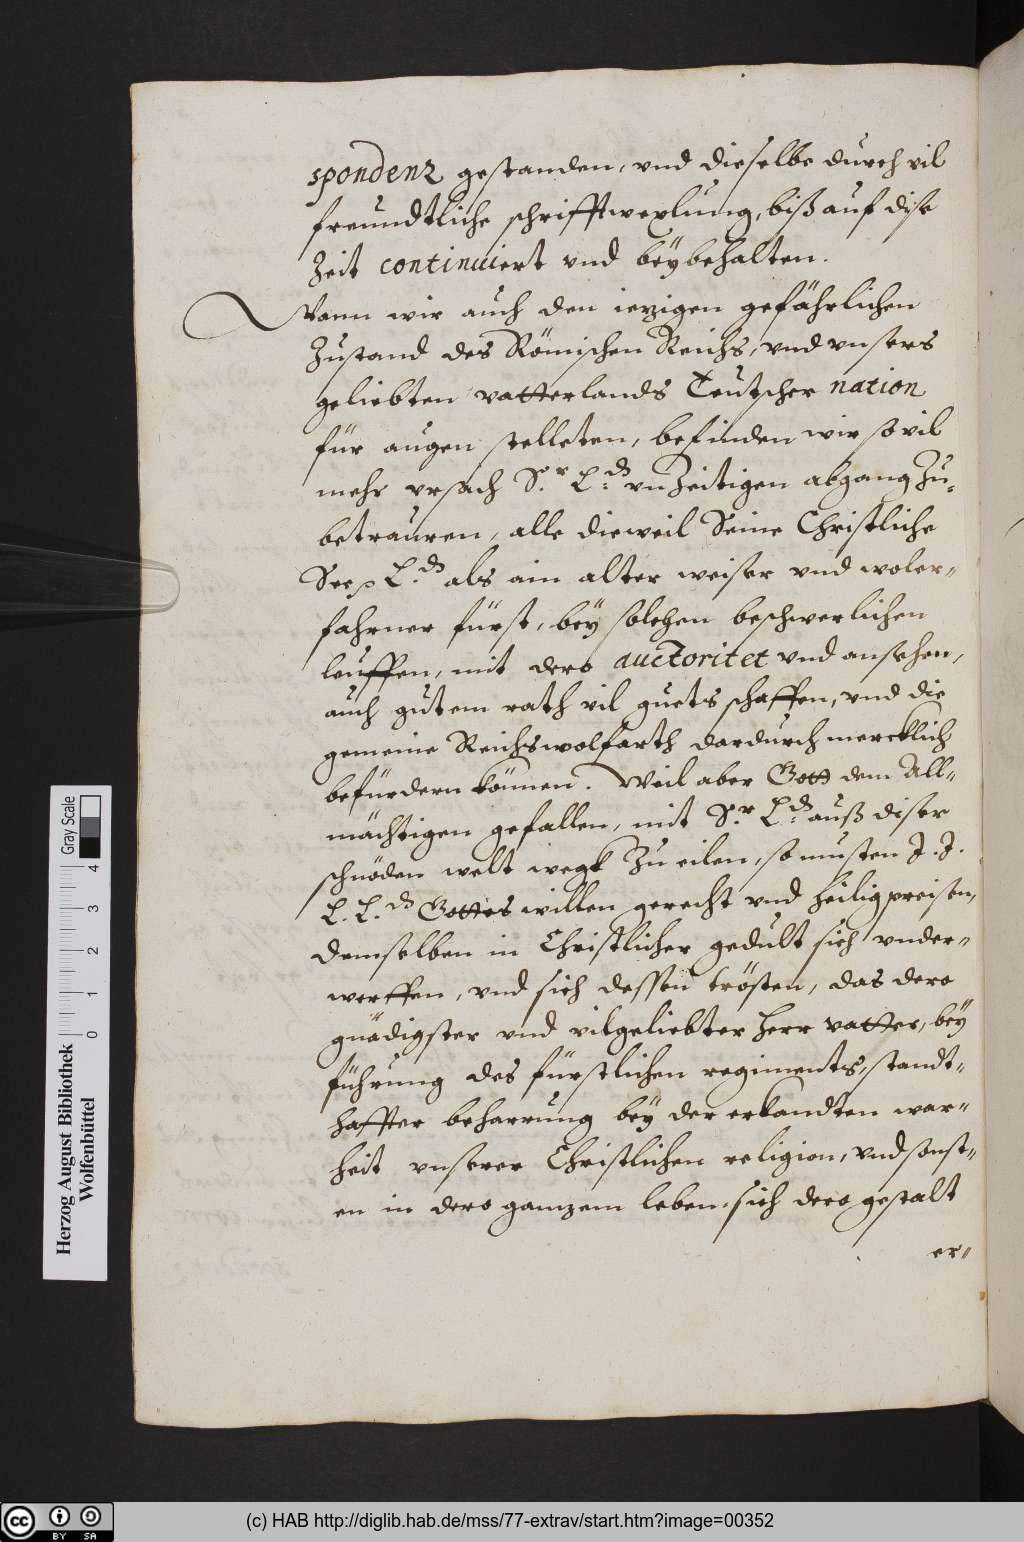 spondenz gestanden, vnd dieselbe durch vil
freundtliche schrifftwexlung, biß auf dise
Zeit continuiert vnd beÿbehalten.
Wann wir auch den iezigen gefährlichen
Zustand des Römischen Reichs, vnd vnsers
geliebten vatterlands Teutscher nation
für augen stelleten, befinden wir so vil
mehr vrsach S.r L.d vnZeitigen abgang Zu-
betrauren, alle dieweil Seine Christliche
See L.d als ain alter weiser vnd woler-
fahrner fürst, beÿ solchen beschwerlichen
leuffen, mit dero auctoritet vnd ansehen,
auch gutem rath vil guets schaffen, vnd die
gemeine Reichswolfarth dardurch mercklich
befürdern können. Weil aber Gott dem All-
mächtigen gefallen, mit S.r L.d auß diser
schnöden welt wegk Zu eilen, so musten J. J.
L. L.d Gottes willen gerecht vnd heilig preisen,
demselben in Christlicher gedult sich vnder-
werffen, vnd sich dessen trösten, das dero
gnädigster vnd vilgeliebter Herr vatter, beÿ
führung des fürstlichen regiments, standt-
haffter beharrung beÿ der erkandten war-
heit vnserer Christlichen religion, vnd sonst-
en in dero ganzem leben, sich dero gestalt
er-
Herzog August Bibliothek
Wolfenbüttel
Gray Scale
0 1 2 3 4
cc BY SA
(c) HAB http://diglib.hab.de/mss/77-extrav/start.htm?image=00352